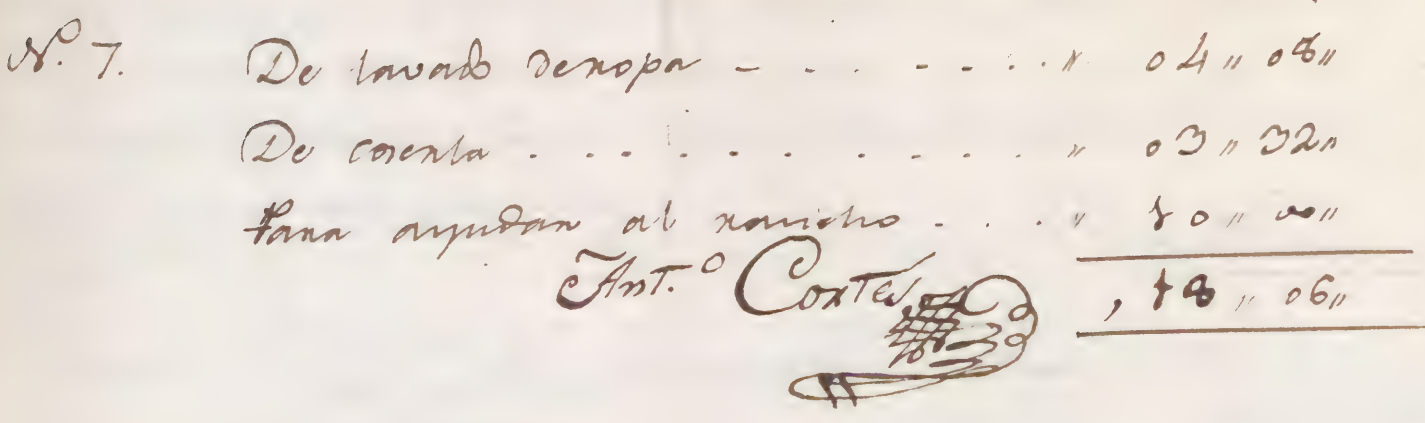 N.º 7. De lavado deropa - . . . - - . . " 04 " 08 "
De coserla . . . . . . . . . . . " 03 " 32 "
Para ayudar al rancho . . . " 10 " 00 "
Ant.º Cortés , 18 " 06 "